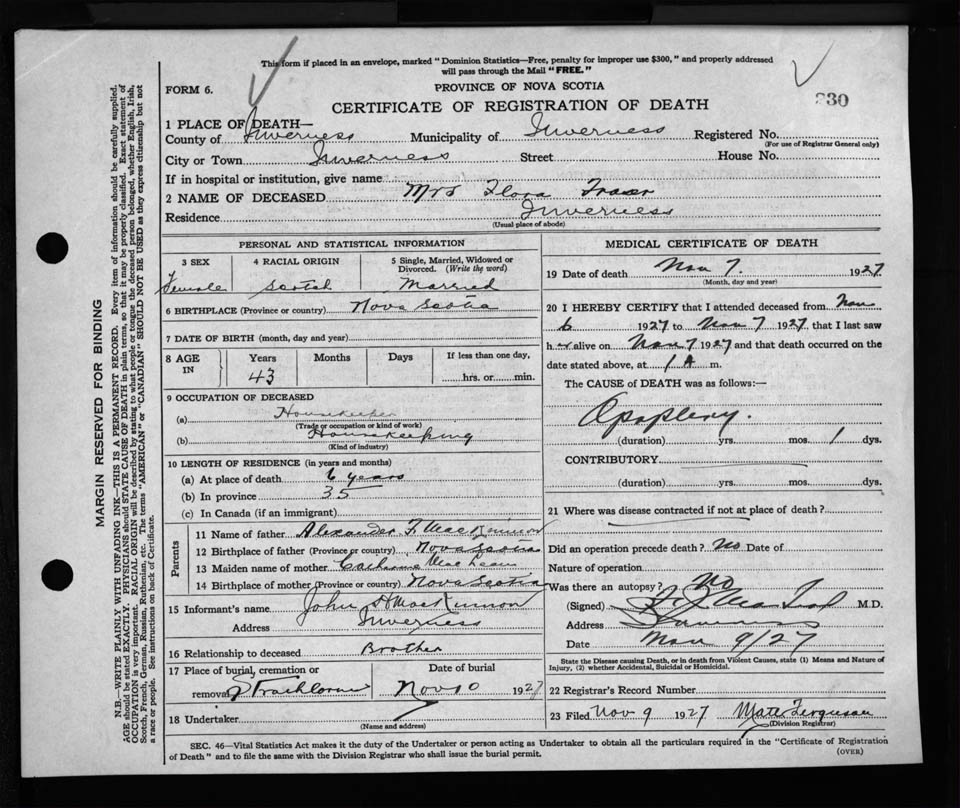 This form if placed in an envelope, marked "Dominion Statistics—Free, penalty for improper use $300," and properly addressed
will pass through the Mail "FREE."
FORM 6.
PROVINCE OF NOVA SCOTIA
CERTIFICATE OF REGISTRATION OF DEATH
330
1 PLACE OF DEATH—
County of Inverness Municipality of Inverness Registered No.
(For use of Registrar General only)
City or Town Inverness Street House No.
If in hospital or institution, give name
2 NAME OF DECEASED Mrs Flora Fraser
Residence Inverness
(Usual place of abode)
PERSONAL AND STATISTICAL INFORMATION
3 SEX
Female
4 RACIAL ORIGIN
Scotch
5 Single, Married, Widowed or
Divorced. (Write the word)
Married
6 BIRTHPLACE (Province or country) Nova Scotia
7 DATE OF BIRTH (month, day and year)
8 AGE
IN
Years
43
Months
Days
If less than one day,
hrs. or min.
9 OCCUPATION OF DECEASED
(a) Housekeeper
(Trade or occupation or kind of work)
(b) Housekeeping
(Kind of industry)
10 LENGTH OF RESIDENCE (in years and months)
(a) At place of death 6 years
(b) In province 35
(c) In Canada (if an immigrant)
Parents
11 Name of father Alexander F MacKinnon
12 Birthplace of father (Province or country) Nova Scotia
13 Maiden name of mother Catherine MacLean
14 Birthplace of mother (Province or country) Nova Scotia
15 Informant's name John A MacKinnon
Address Inverness
16 Relationship to deceased Brother
17 Place of burial, cremation or
removal Strathlorne
Date of burial
Nov 10 1927
18 Undertaker
(Name and address)
MEDICAL CERTIFICATE OF DEATH
19 Date of death Nov 7. 1927
(Month, day and year)
20 I HEREBY CERTIFY that I attended deceased from Nov
6 1927 to Nov 7 1927, that I last saw
her alive on Nov 7 1927 and that death occurred on the
date stated above, at 1 A m.
The CAUSE of DEATH was as follows:—
Apoplexy.
(duration) yrs. mos. 1 dys.
CONTRIBUTORY
(duration) yrs. mos. dys.
21 Where was disease contracted if not at place of death?
Did an operation precede death? No Date of
Nature of operation
Was there an autopsy? No
(Signed) M.D.
Address
Date Nov 9/27
State the Disease causing Death, or in death from Violent Causes, state (1) Means and Nature of
Injury, (2) whether Accidental, Suicidal or Homicidal.
22 Registrar's Record Number
23 Filed Nov 9 1927 Ferguson
(Division Registrar)
SEC. 46—Vital Statistics Act makes it the duty of the Undertaker or person acting as Undertaker to obtain all the particulars required in the "Certificate of Registration
of Death" and to file the same with the Division Registrar who shall issue the burial permit.
(OVER)
MARGIN RESERVED FOR BINDING
N.B. WRITE PLAINLY WITH UNFADING INK—THIS IS A PERMANENT RECORD. Every item of information should be carefully supplied.
AGE should be stated EXACTLY. PHYSICIANS should STATE CAUSE OF DEATH in plain terms, so that it may be properly classified. Exact statement of
OCCUPATION is very important. RACIAL ORIGIN will be described by stating to what people or tongue the deceased person belonged, whether English, Irish,
Scotch, French, German, Russian, Ruthenian, etc. The terms "AMERICAN" or "CANADIAN" SHOULD NOT BE USED as they express citizenship but not
a race or people. See instructions on back of Certificate.